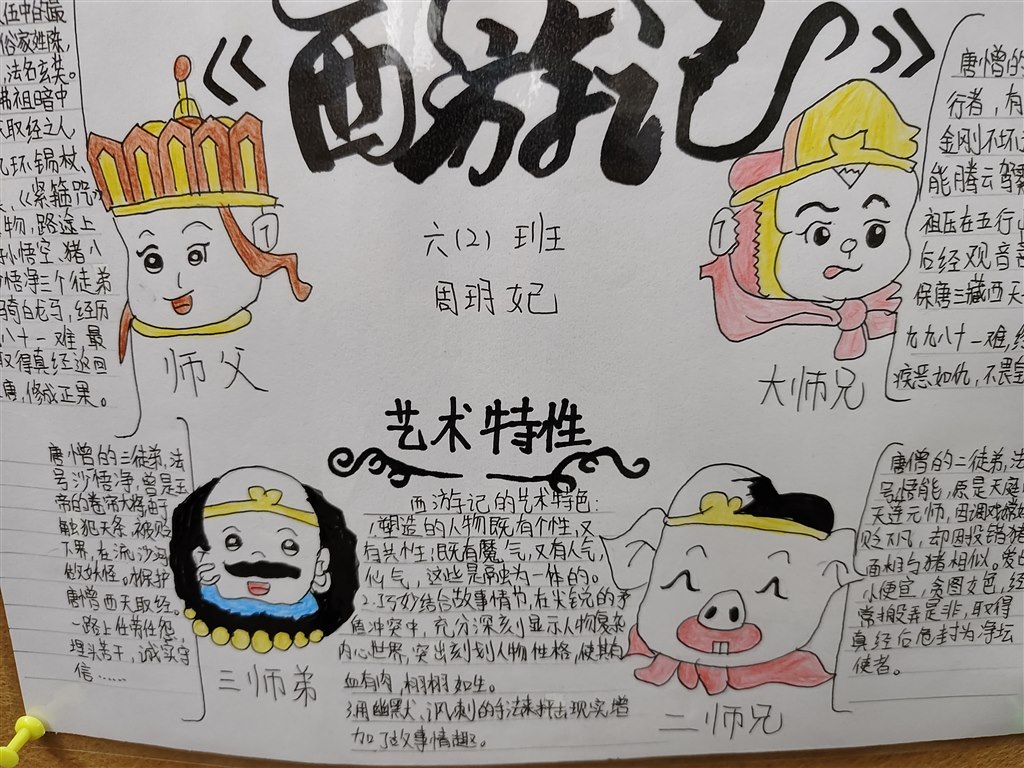 《西游记》
六(2)班
周玥妃
伍中的最
俗家姓陈,
,法名玄奘。
佛祖暗中
取经之人
九环锡杖、
、《紧箍咒》
物,路途上
孙悟空、猪八
悟净三个徒弟
骑白龙马,经历
八十一难,最
取得真经返回
唐,修成正果。
师父
唐憎的
行者,有
金刚不坏
能腾云驾
祖压在五行山
后经观音菩
保唐三藏西天
九九八十一难,经
疾恶如仇,不畏皇
大师兄
艺术特性
西游记的艺术特色:
1.塑造的人物既有个性,又
有共性;既有魔气,又有人气,
仙气,这些是融为一体的。
2.巧妙结合故事情节,在尖锐的矛
盾冲突中,充分深刻显示人物复杂
内心世界,突出刻划人物性格,使其有
血有肉,栩栩如生。
3.用幽默、讽刺的手法来抨击现实,增
加了故事情趣。
唐憎的三徒弟,法
号沙悟净,曾是玉
帝的卷帘大将由于
触犯天条,被贬
下界,在流沙河
做妖怪。保护
唐憎西天取经。
一路上任劳任怨,
埋头苦干,诚实守
信……
三师弟
唐憎的二徒弟,法
号悟能,原是天庭
天连元帅,因调戏嫦娥
贬下凡,却因投错猪
面相与猪相似。爱占
小便宜,贪图女包,经
常搬弄是非,取得
真经后危封为净坛
使者。
二师兄